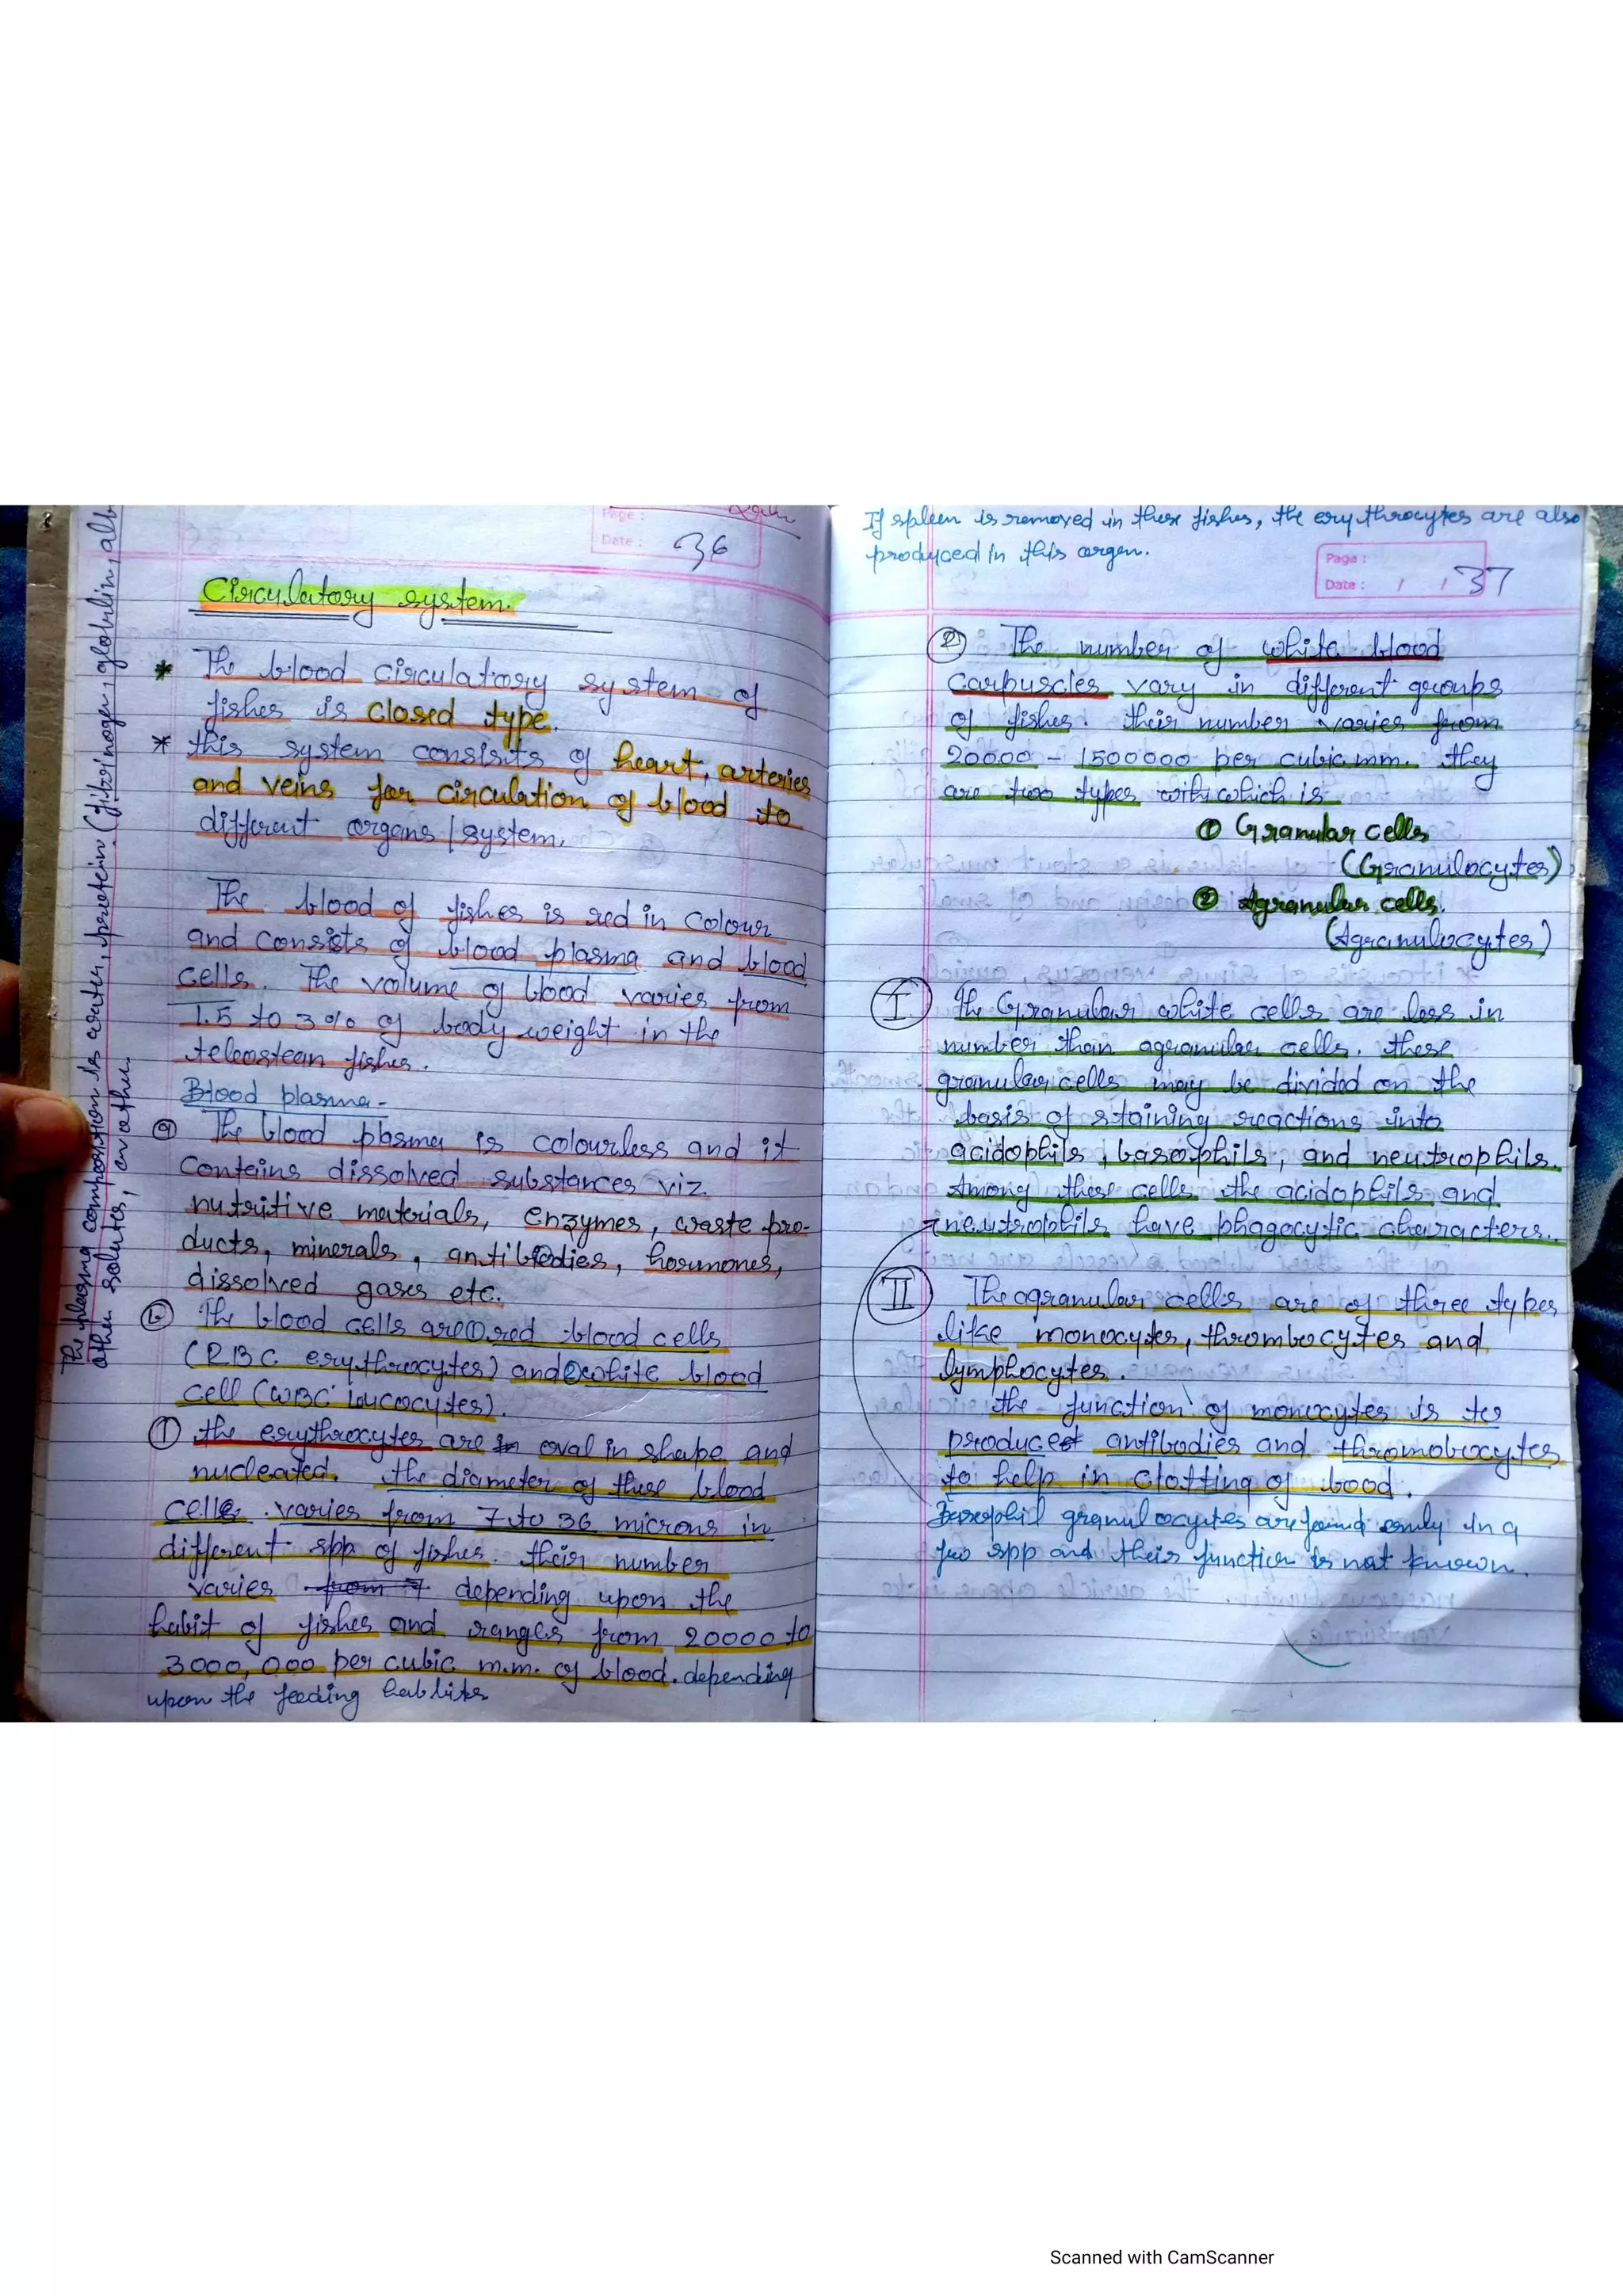 Page :
Date : 36
Circulatory system.
* The blood circulatory system of
fishes is closed type.
* this system consists of heart, arteries
and veins for circulation of blood to
different organs / system.
The blood of fishes is red in colour
and consists of blood plasma and blood
cells. The volume of blood varies from
1.5 to 3% of body weight in the
teleostean fishes.
Blood plasma -
(a) The blood plasma is colourless and it
contains dissolved substances viz
nutritive materials, enzymes, waste pro-
ducts, minerals, antibodies, hormones,
dissolved gases etc.
(b) The blood cells are ① red blood cells
(RBC erythrocytes) and ② white blood
cell (WBC loucocytes).
① the erythrocytes are in oval in shape and
nucleated. the diameter of these blood
cells varies from 7 to 36 microns in
different spp of fishes. their number
varies from 17 depending upon the
habit of fishes and ranges from 20000 to
3000,000 per cubic m.m. of blood. depending
upon the feeding habbits
The plasma composition is water, protein (fibrinogen, globulin, alb
other solutes,
If spleen is removed in these fishes, the erythrocytes are also
produced in this organ.
Page :
Date : / / 37
② The number of white blood
carpuscles vary in different groups
of fishes. their number varies from
20000 - 1500000 per cubic mm. they
are two types with which is
① Granular cells
(Granulocytes)
② Agranular cells.
(Agranulocytes)
I the Granular white cells are less in
number than agranular cells. these
granular cells may be divided on the
basis of staining reactions into
acidophils, basophils, and neutrophils.
Among these cells the acidophils and
neutrophils have phagocytic characters.
II The agranular cells are of three types
like monocytes, thrombocytes and
lymphocytes.
the function of monocytes is to
produce antibodies and thromobocytes
to help in clotting of blood.
Basophil granulocytes are found only in a
few spp and their function is not known.
Scanned with CamScanner